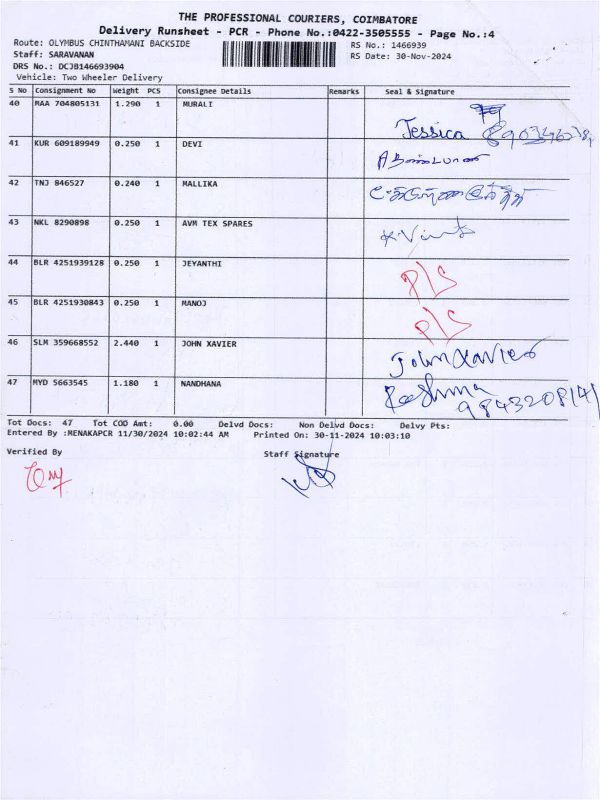 THE PROFESSIONAL COURIERS, COIMBATORE
Delivery Runsheet - PCR - Phone No.:0422-3505555 - Page No.:4
Route: OLYMBUS CHINTHAMANI BACKSIDE RS No.: 1466939
Staff: SARAVANAN RS Date: 30-Nov-2024
DRS No.: DCJB146693904
Vehicle: Two Wheeler Delivery
S No Consignment No Weight PCS Consignee Details Remarks Seal & Signature
40 MAA 704805131 1.290 1 MURALI
Jessica
41 KUR 609189949 0.250 1 DEVI
42 TNJ 846527 0.240 1 MALLIKA
43 NKL 8290898 0.250 1 AVM TEX SPARES
44 BLR 4251939128 0.250 1 JEYANTHI P/S
45 BLR 4251930843 0.250 1 MANOJ P/S
46 SLM 359668552 2.440 1 JOHN XAVIER
John Xavier
47 MYD 5663545 1.180 1 NANDHANA Reshma
9843208141
Tot Docs: 47 Tot COD Amt: 0.00 Delvd Docs: Non Delvd Docs: Delvy Pts:
Entered By :MENAKAPCR 11/30/2024 10:02:44 AM Printed On: 30-11-2024 10:03:10
Verified By Staff Signature